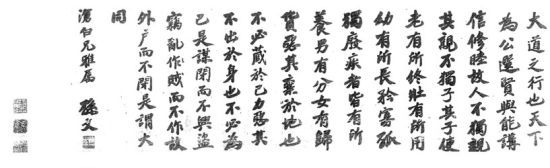 大道之行也天下
為公選賢與能講
信修睦故人不獨親
其親不獨子其子使
老有所終壯有所用
幼有所長矜寡孤
獨廢疾者皆有所
養男有分女有歸
貨惡其棄於地也
不必藏於己力惡其
不出於身也不必為
己是謀閉而不興盜
竊亂作賊而不作故
外戶而不閉是謂大
同
滄白兄雅屬
孫文